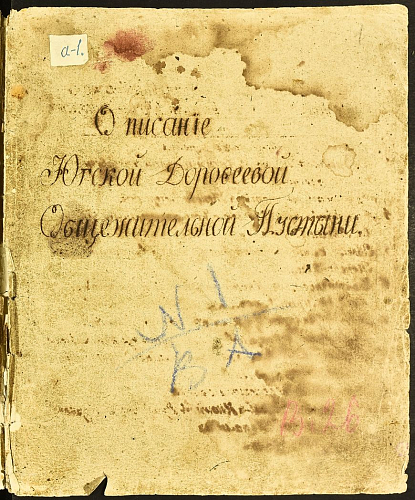 а-1.
Описанiе
Югской Дороѳеевой
Общежительной Пустыни.
N 1
В А